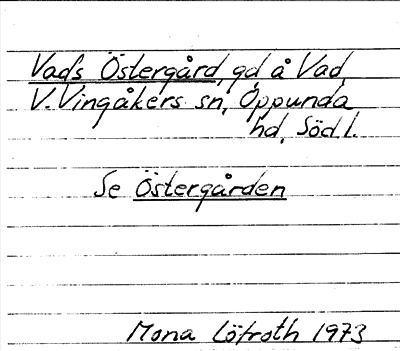 Vads Östergård, gd, å Vad,
V. Vingåkers sn, Oppunda
hd, Södl.
Se Östergården
Mona Löfroth 1973